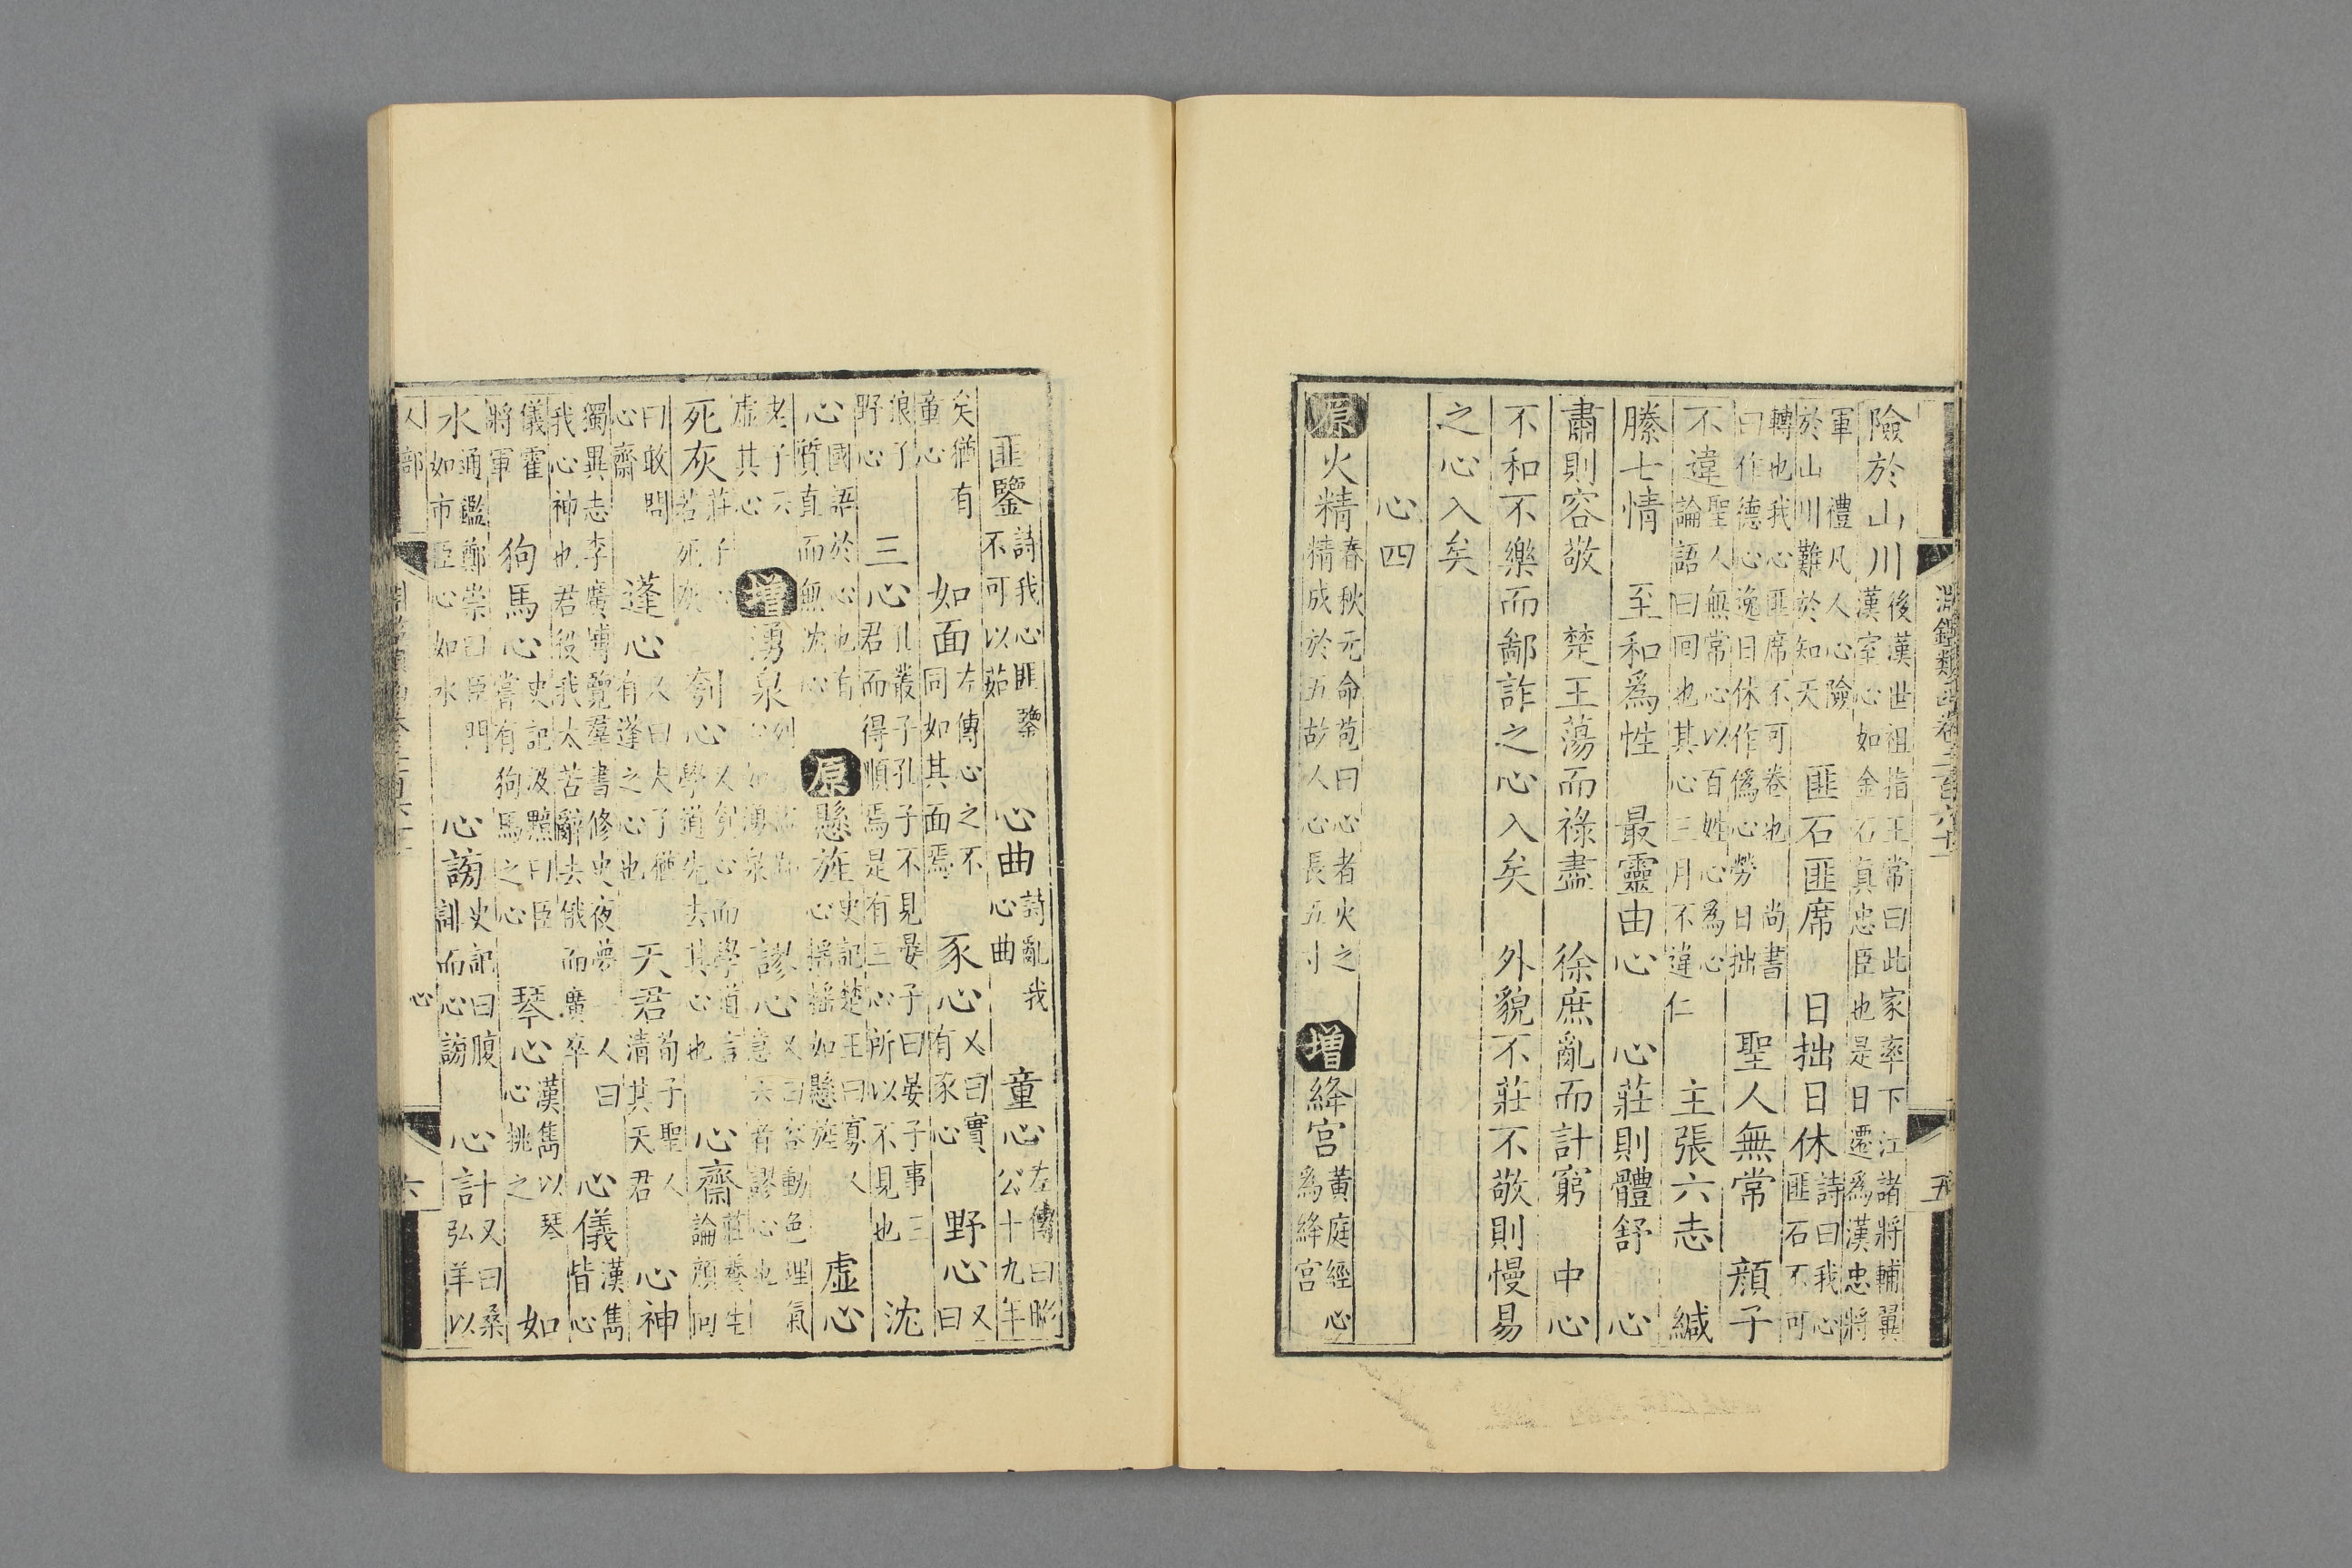 淵鑑類函卷二百六十一 五
險於山川後漢世祖指王常曰此家率下江諸將輔翼漢室心如金石真忠臣也是日遷爲漢忠將
軍 禮凡人心險於山川難於知天 匪石匪席 日拙日休詩曰我心匪石不可
轉也我心匪席不可卷也 尚書曰作德心逸日休作僞心勞日拙 聖人無常 顏子
不違聖人無常心以百姓心爲心論語曰回也其心三月不違仁 主張六志 緘
縢七情 至和爲性 最靈由心 心莊則體舒 心
肅則容敬 楚王蕩而祿盡 徐庶亂而計窮 中心
不和不樂而鄙詐之心入矣 外貌不莊不敬則慢易
之心入矣
心四
原火精春秋元命苞曰心者火之精成於五故人心長五寸 增絳宮黃庭經心爲絳宮
匪鑒詩我心匪鑒不可以茹 心曲詩亂我心曲 童心左傳曰昭公十九年
矣猶有童心 如面左傳心之不同如其面焉 豕心又曰實有豕心 野心又曰
狼子野心 三心孔叢子孔子不見晏子曰晏子事三君而得順焉是有三心所以不見也 沈
心國語於心也有質直而無沈心 原懸旌史記楚王曰寡人心搖搖如懸旌 虛心
老子不虛其心 增湧泉列如湧泉 謬心又曰容動色理氣意六者謬心也
死灰莊子心若死灰 刳心又刳心而學道言學道先去其心也 心齋莊養生論顏回
曰敢問心齋 蓬心又曰夫子猶有蓬之心也 天君荀子聖人清其天君 心神
獨異志李廣博覽羣書修史夜夢一人曰我心神也君役我太苦辭去俄而廣卒 心儀漢雋皆心
儀霍將軍 狗馬心史記汲黯曰臣嘗有狗馬之心 琴心漢雋以琴心挑之 如
水通鑑鄭崇曰臣門如市臣心如水 心謗史記曰腹誹而心謗 心計又曰桑弘羊以
人部 心 六